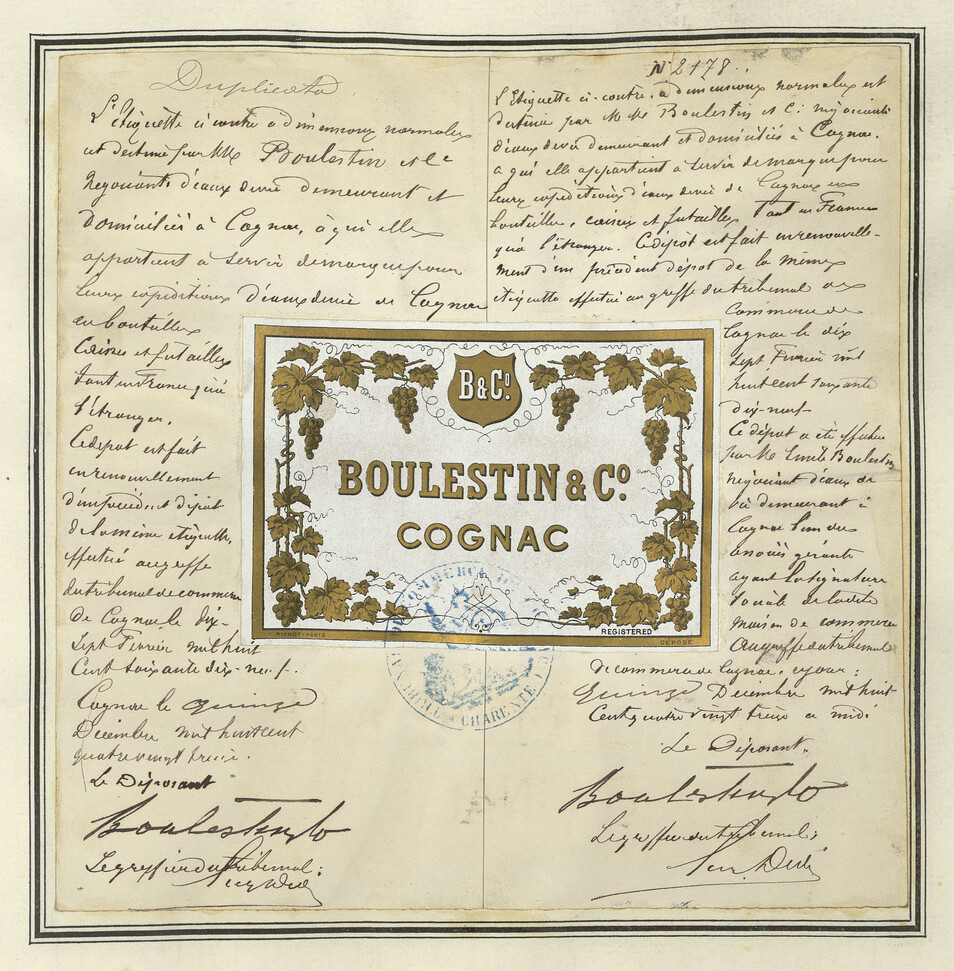 Duplicata
L'Etiquette ci contre a dimensions normales
est destinée par MM Boulestin et Cie
Négociants d'eaux de vie demeurant et
domiciliés à Cognac, à qui elle
appartient à servir de marque pour
leurs expéditions d'eaux de vie de Cognac
en bouteilles
Caisses et futailles
tant en France qu'à
l'étranger.
Ce dépot est fait
en renouvellement
d'un précédent dépot
de la même étiquette,
effectué au greffe
du tribunal de commerce
de Cognac le dix-
sept Février mil huit
Cent soixante dix-neuf.
Cognac le quinze
Décembre mil huit cent
quatre vingt treize.
Le Déposant
Boulestin & Co
Le greffier du Tribunal:
N° 2178.
L'Etiquette ci-contre, a dimensions normales est
destinée par M Ms Boulestin et Cie négociants
d'eaux de vie demeurant et domiciliés à Cognac.
a qui elle appartient à servir de marque pour
leurs expéditions d'eaux de vie de Cognac en
bouteilles, caisses et futailles tant en France
qu'à l'étranger. Ce dépôt est fait en renouvelle-
ment d'un précédent dépot de la même
étiquette effectué au greffe du tribunal de
Commerce de
Cognac le dix
sept Février mil
huit cent soixante
dix-neuf
Ce dépôt a été effectué
par M Emile Boulestin
négociant d'eaux de
vie demeurant à
Cognac l'un des
associés gérants
ayant la signature
sociale de ladite
maison de commerce
au greffe du tribunal
de commerce de Cognac, ce jour:
Quinze Décembre mil huit
Cent quatre vingt treize a midi
Le Déposant.
Boulestin & Co
Le greffier du Tribunal:
B & Co.
BOULESTIN & Co.
COGNAC
REGISTERED
DÉPOSÉ
TRIBUNAL DE COMMERCE DE
CHARENTE